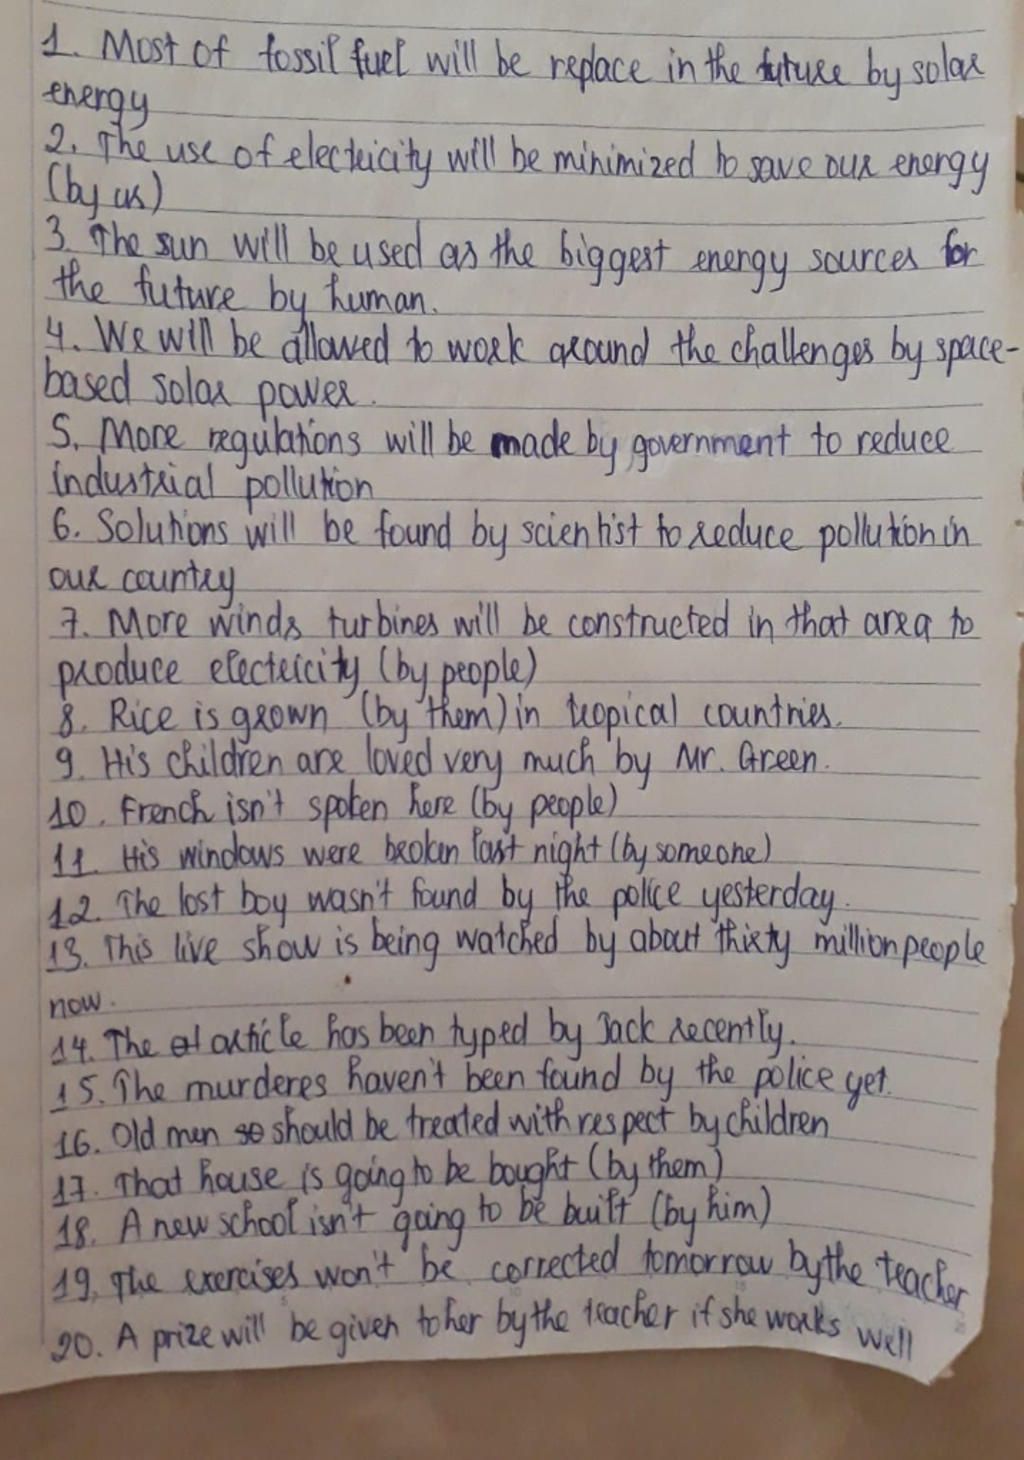 1. Most of fossil fuel will be replace in the future by solar
energy
2. The use of electricity will be minimized to save our energy
(by us)
3. The sun will be used as the biggest energy sources for
the future by human.
4. We will be allowed to work around the challenges by space-
based solar power.
5. More regulations will be made by government to reduce
industrial pollution
6. Solutions will be found by scientist to reduce pollution in
our country
7. More winds turbines will be constructed in that area to
produce electricity (by people)
8. Rice is grown (by them) in tropical countries.
9. His children are loved very much by Mr. Green.
10. French isn't spoken here (by people)
11. His windows were broken last night (by someone)
12. The lost boy wasn't found by the police yesterday.
13. This live show is being watched by about thirty million people
now.
14. The article has been typed by Jack recently.
15. The murderes haven't been found by the police yet.
16. Old men should be treated with respect by children
17. That house is going to be bought (by them)
18. A new school isn't going to be built (by him)
19. The exercises won't be corrected tomorrow by the teacher
20. A prize will be given to her by the teacher if she works well